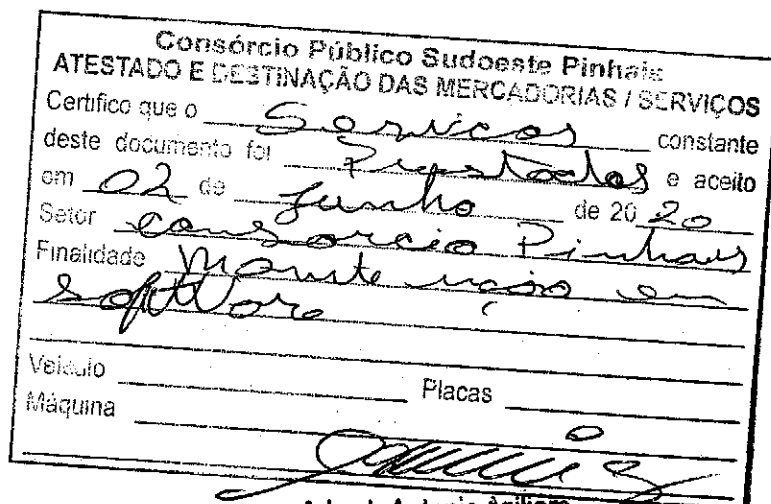 Consórcio Público Sudoeste Pinhais
ATESTADO E DESTINAÇÃO DAS MERCADORIAS / SERVIÇOS
Certifico que o Serviços constante
deste documento foi Prestados e aceito
em 02 de Junho de 2020
Setor consorcio Pinhais
Finalidade Manutenção em
software
Veículo Placas
Máquina
Antonio